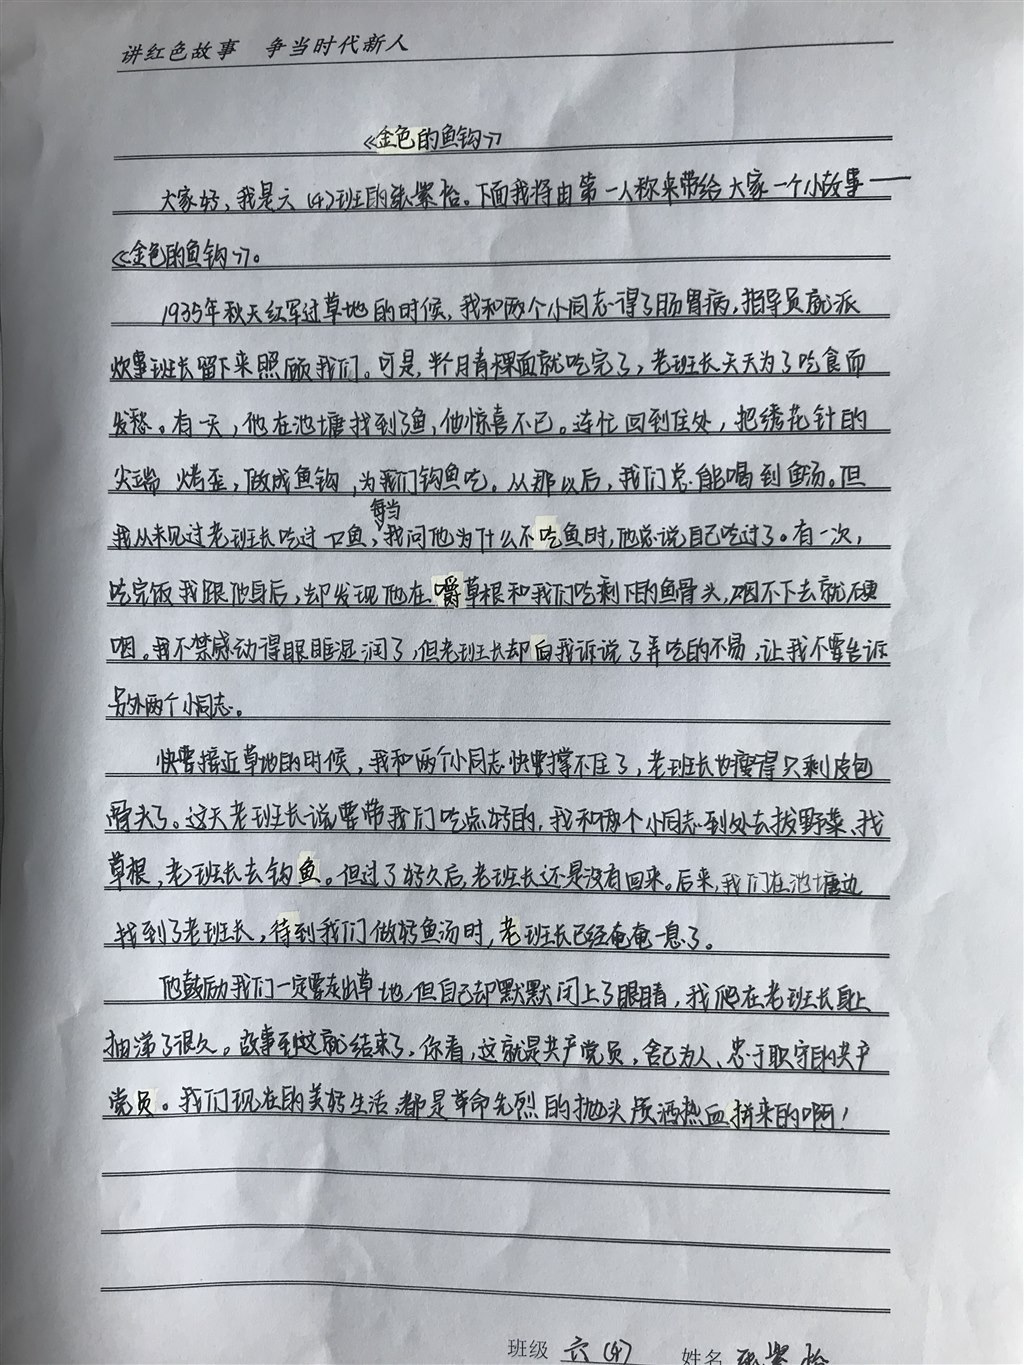 讲红色故事 争当时代新人
《金色的鱼钩》
大家好,我是六(4)班的 紫怡。下面我将由第一人称来带给大家一个小故事——
《金色的鱼钩》。
1935年秋天红军过草地的时候,我和两个小同志得了肠胃病,指导员就派
炊事班长留下来照顾我们。可是,半个月青稞面就吃完了,老班长天天为了吃食而
发愁。有一天,他在池塘找到了鱼,他惊喜不已。连忙回到住处,把绣花针的
尖端 烤歪,做成鱼钩,为我们钩鱼吃。从那以后,我们总能喝到鱼汤。但
每当
我从未见过老班长吃过一口鱼,我问他为什么不吃鱼时,他总说自己吃过了。有一次,
吃完饭我跟他身后,却发现他在嚼草根和我们吃剩下的鱼骨头,咽不下去就硬
咽。我不禁感动得眼眶湿润了,但老班长却向我诉说了弄吃的不易,让我不要告诉
另外两个小同志。
快要接近草地的时候,我和两个小同志快要撑不住了,老班长也瘦得只剩皮包
骨头了。这天老班长说要带我们吃点好的,我和两个小同志到处去拔野菜、找
草根,老班长去钩鱼。但过了好久后,老班长还是没有回来。后来,我们在池塘边
找到了老班长,待到我们做好鱼汤时,老班长已经奄奄一息了。
他鼓励我们一定要走出草地,但自己却默默闭上了眼睛,我爬在老班长身上
抽涕了很久。故事到这就结束了,你看,这就是共产党员,舍己为人、忠于职守的共产
党员。我们现在的美好生活,都是革命先烈的抛头颅洒热血拼来的啊!
班级 六(4) 姓名 紫怡